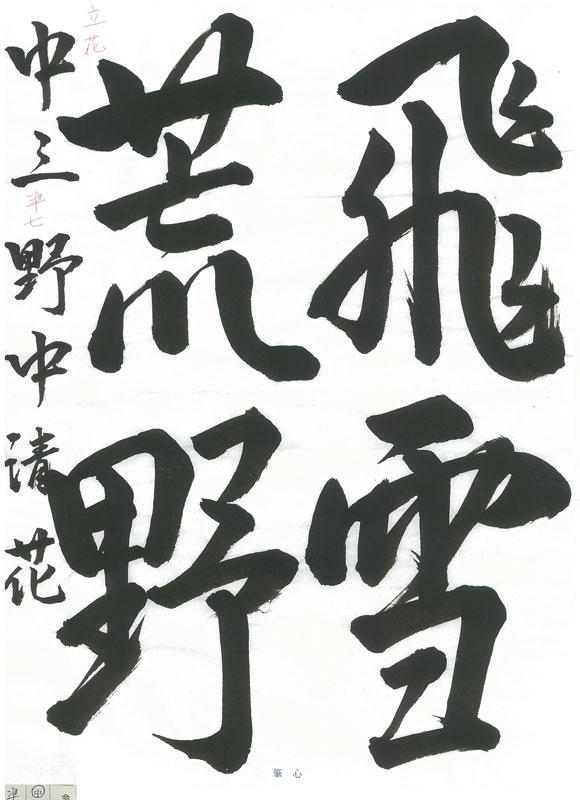 飛雪
荒野
中三 野中清花
立花
準七
心筆
準 中